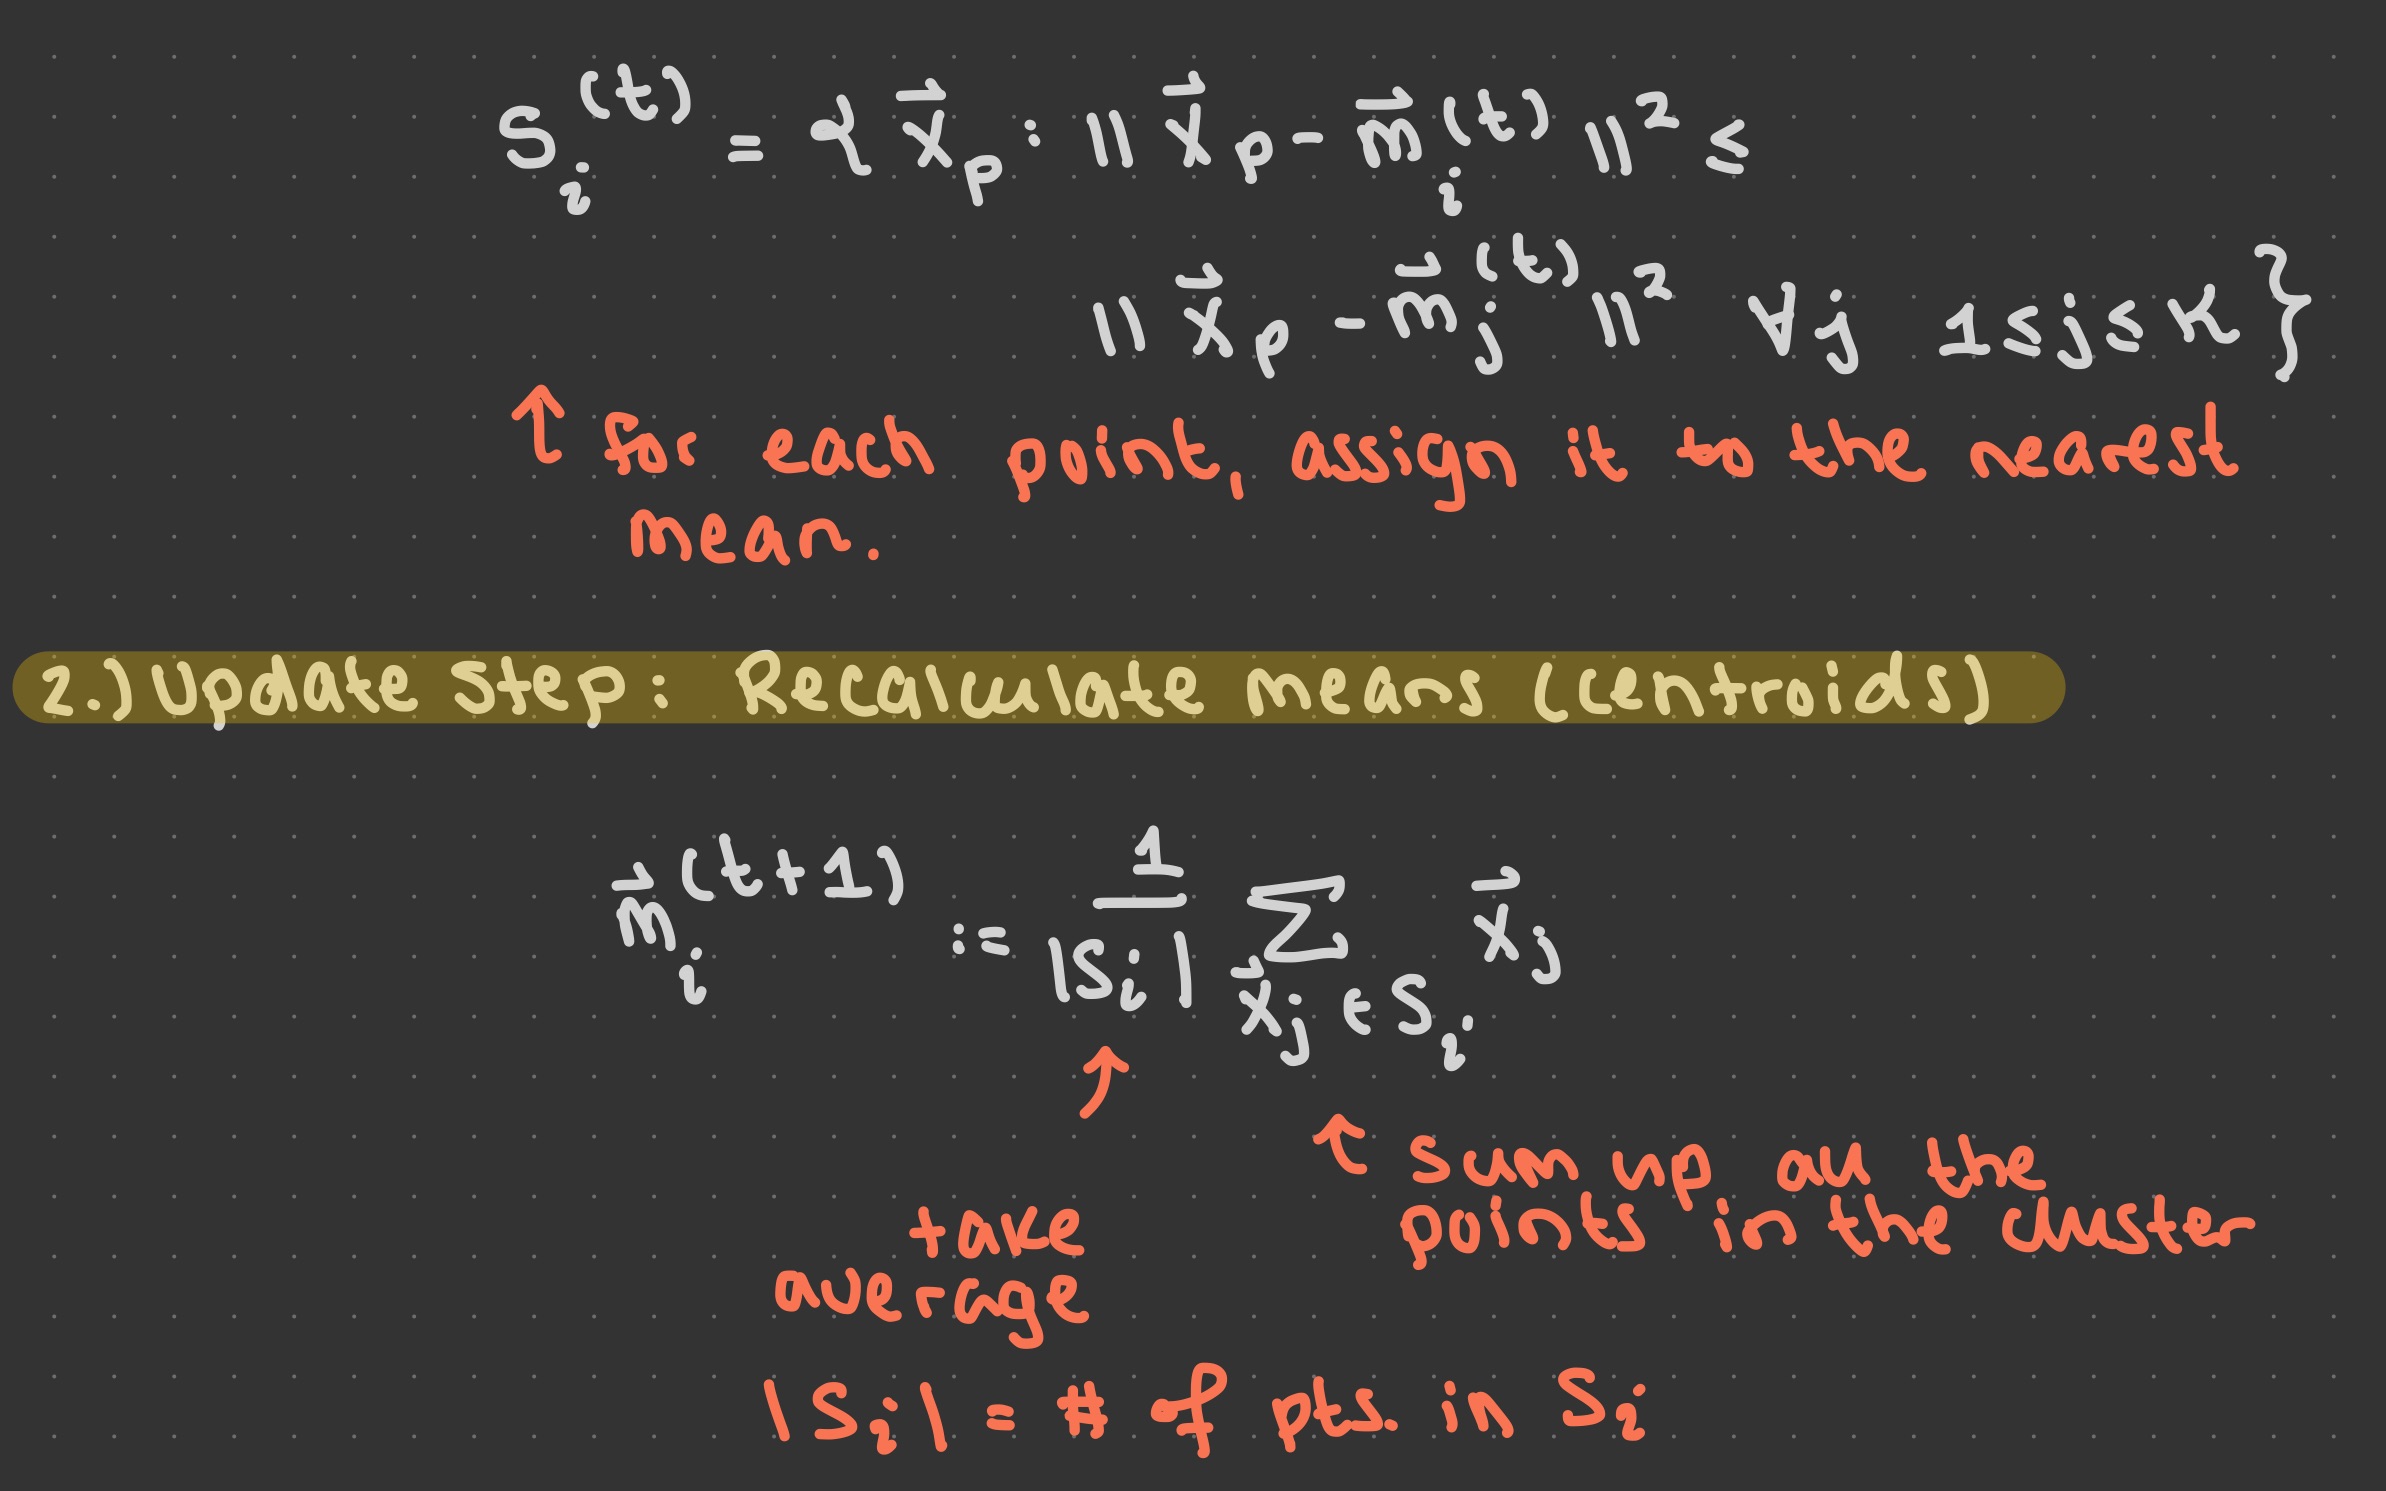 S_i^(t) = { x⃗_p : || x⃗_p - m⃗_i^(t) ||² ≤
|| x⃗_p - m⃗_j^(t) ||² ∀j 1≤j≤k }
↑ for each point, assign it to the nearest
mean.
2.) Update step: Recalculate means (centroids)
m⃗_i^(t+1) := 1/|S_i| Σ_{x⃗_j ∈ S_i} x⃗_j
↑ sum up all the
points in the cluster
take
average
|S_i| = # of pts. in S_i